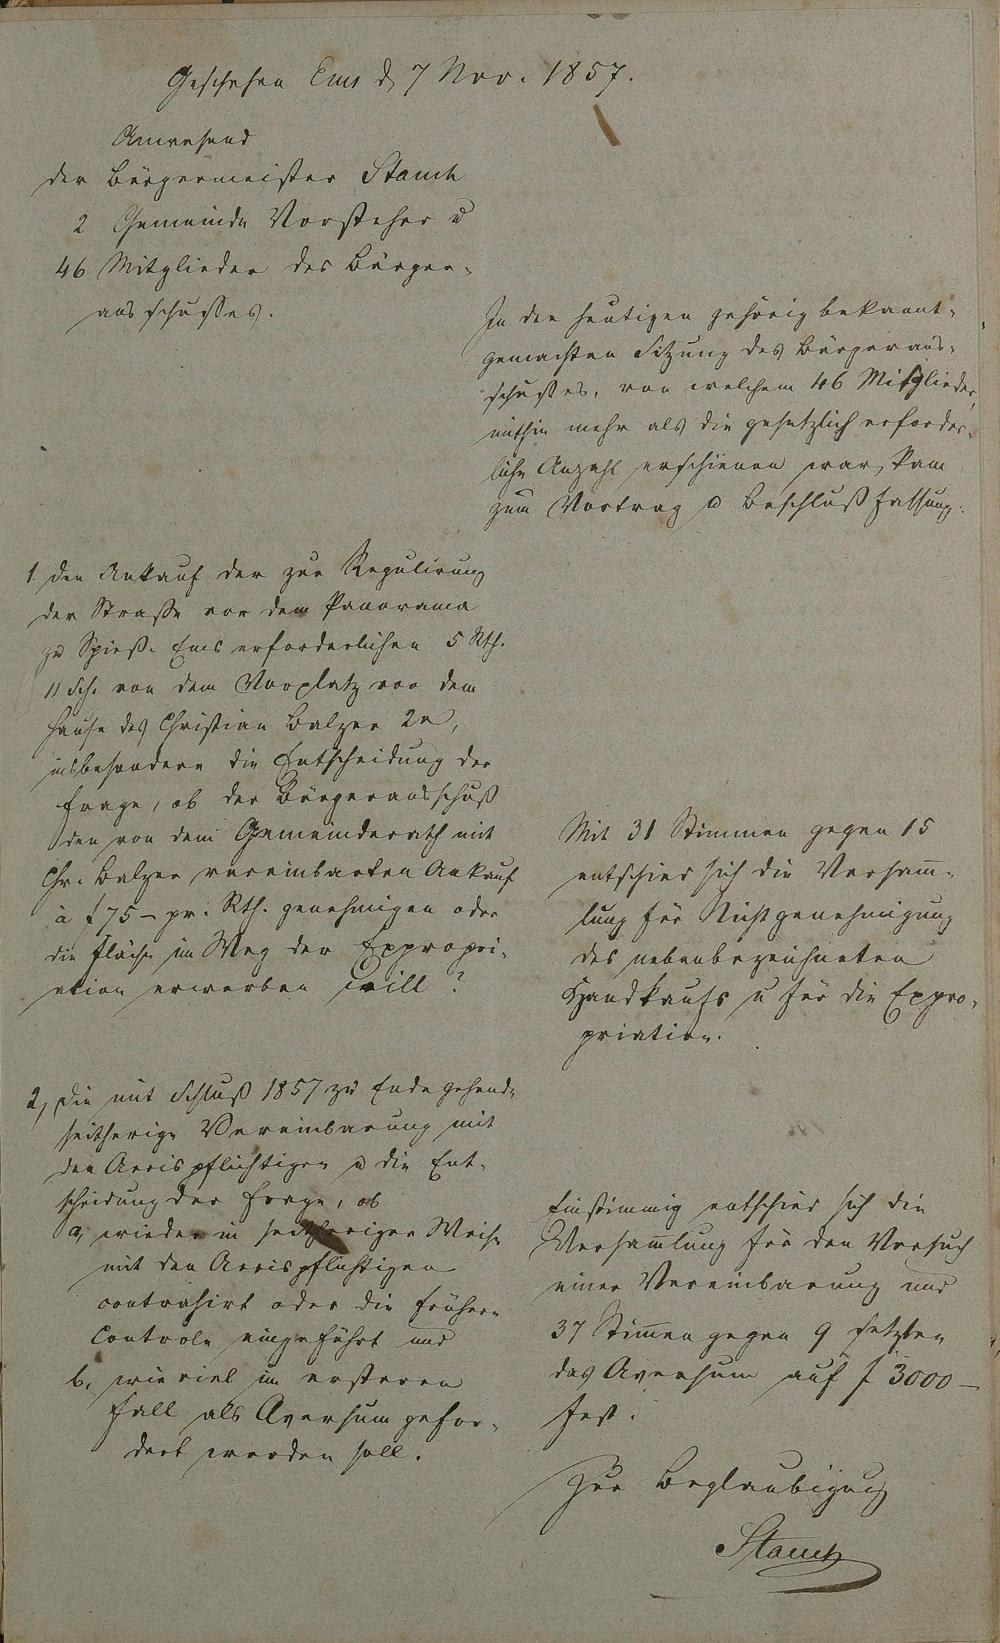 Geschehen Ems d 7 Nov. 1857.
Anwesend
der Bürgermeister Stamm
2 Gemeinde Vorsteher u
46 Mitglieder des Bürger-
ausschusses.
In der heutigen gehörig bekannt-
gemachten Sitzung des Bürgeraus-
schusses, von welchem 46 Mitglieder,
mithin mehr als die gesetzlich erforder-
liche Anzahl erschienen war, kam
zum Vortrag u Beschlußfassung:
1. den Ankauf der zur Regulirung
der Straße vor dem Panorama
zu Spieß-Ems erforderlichen 5 Rth.
11 Sch. von dem Vorplatz vor dem
Hause des Christian Balzer 2r,
insbesondere die Entscheidung der
Frage, ob der Bürgerausschuß
den von dem Gemeinderath mit
Chr. Balzer vereinbarten Ankauf
à f 75 – pr. Rth. genehmigen oder
die Fläche im Weg der Expropri-
ation erwerben will?
Mit 31 Stimmen gegen 15
entschied sich die Versam̅-
lung für Nichtgenehmigung
des nebenbezeichneten
Handkaufs u für die Expro-
priation.
2, die mit Schluß 1857 zu Ende gehende
seitherige Vereinbarung mit
den Accispflichtigen u die Ent-
scheidung der Frage, ob
a, wieder in seitheriger Weise
mit den Accispflichtigen
contrahirt oder die frühere
Controle eingeführt und
b, wie viel im ersteren
Fall als Aversum gefor-
dert werden soll.
Einstimmig entschied sich die
Versam̅lung für den Versuch
einer Vereinbarung und
37 Stim̅en gegen 9 setzten
das Aversum auf f 3000 –
fest.
Zur Beglaubigung
Stamm